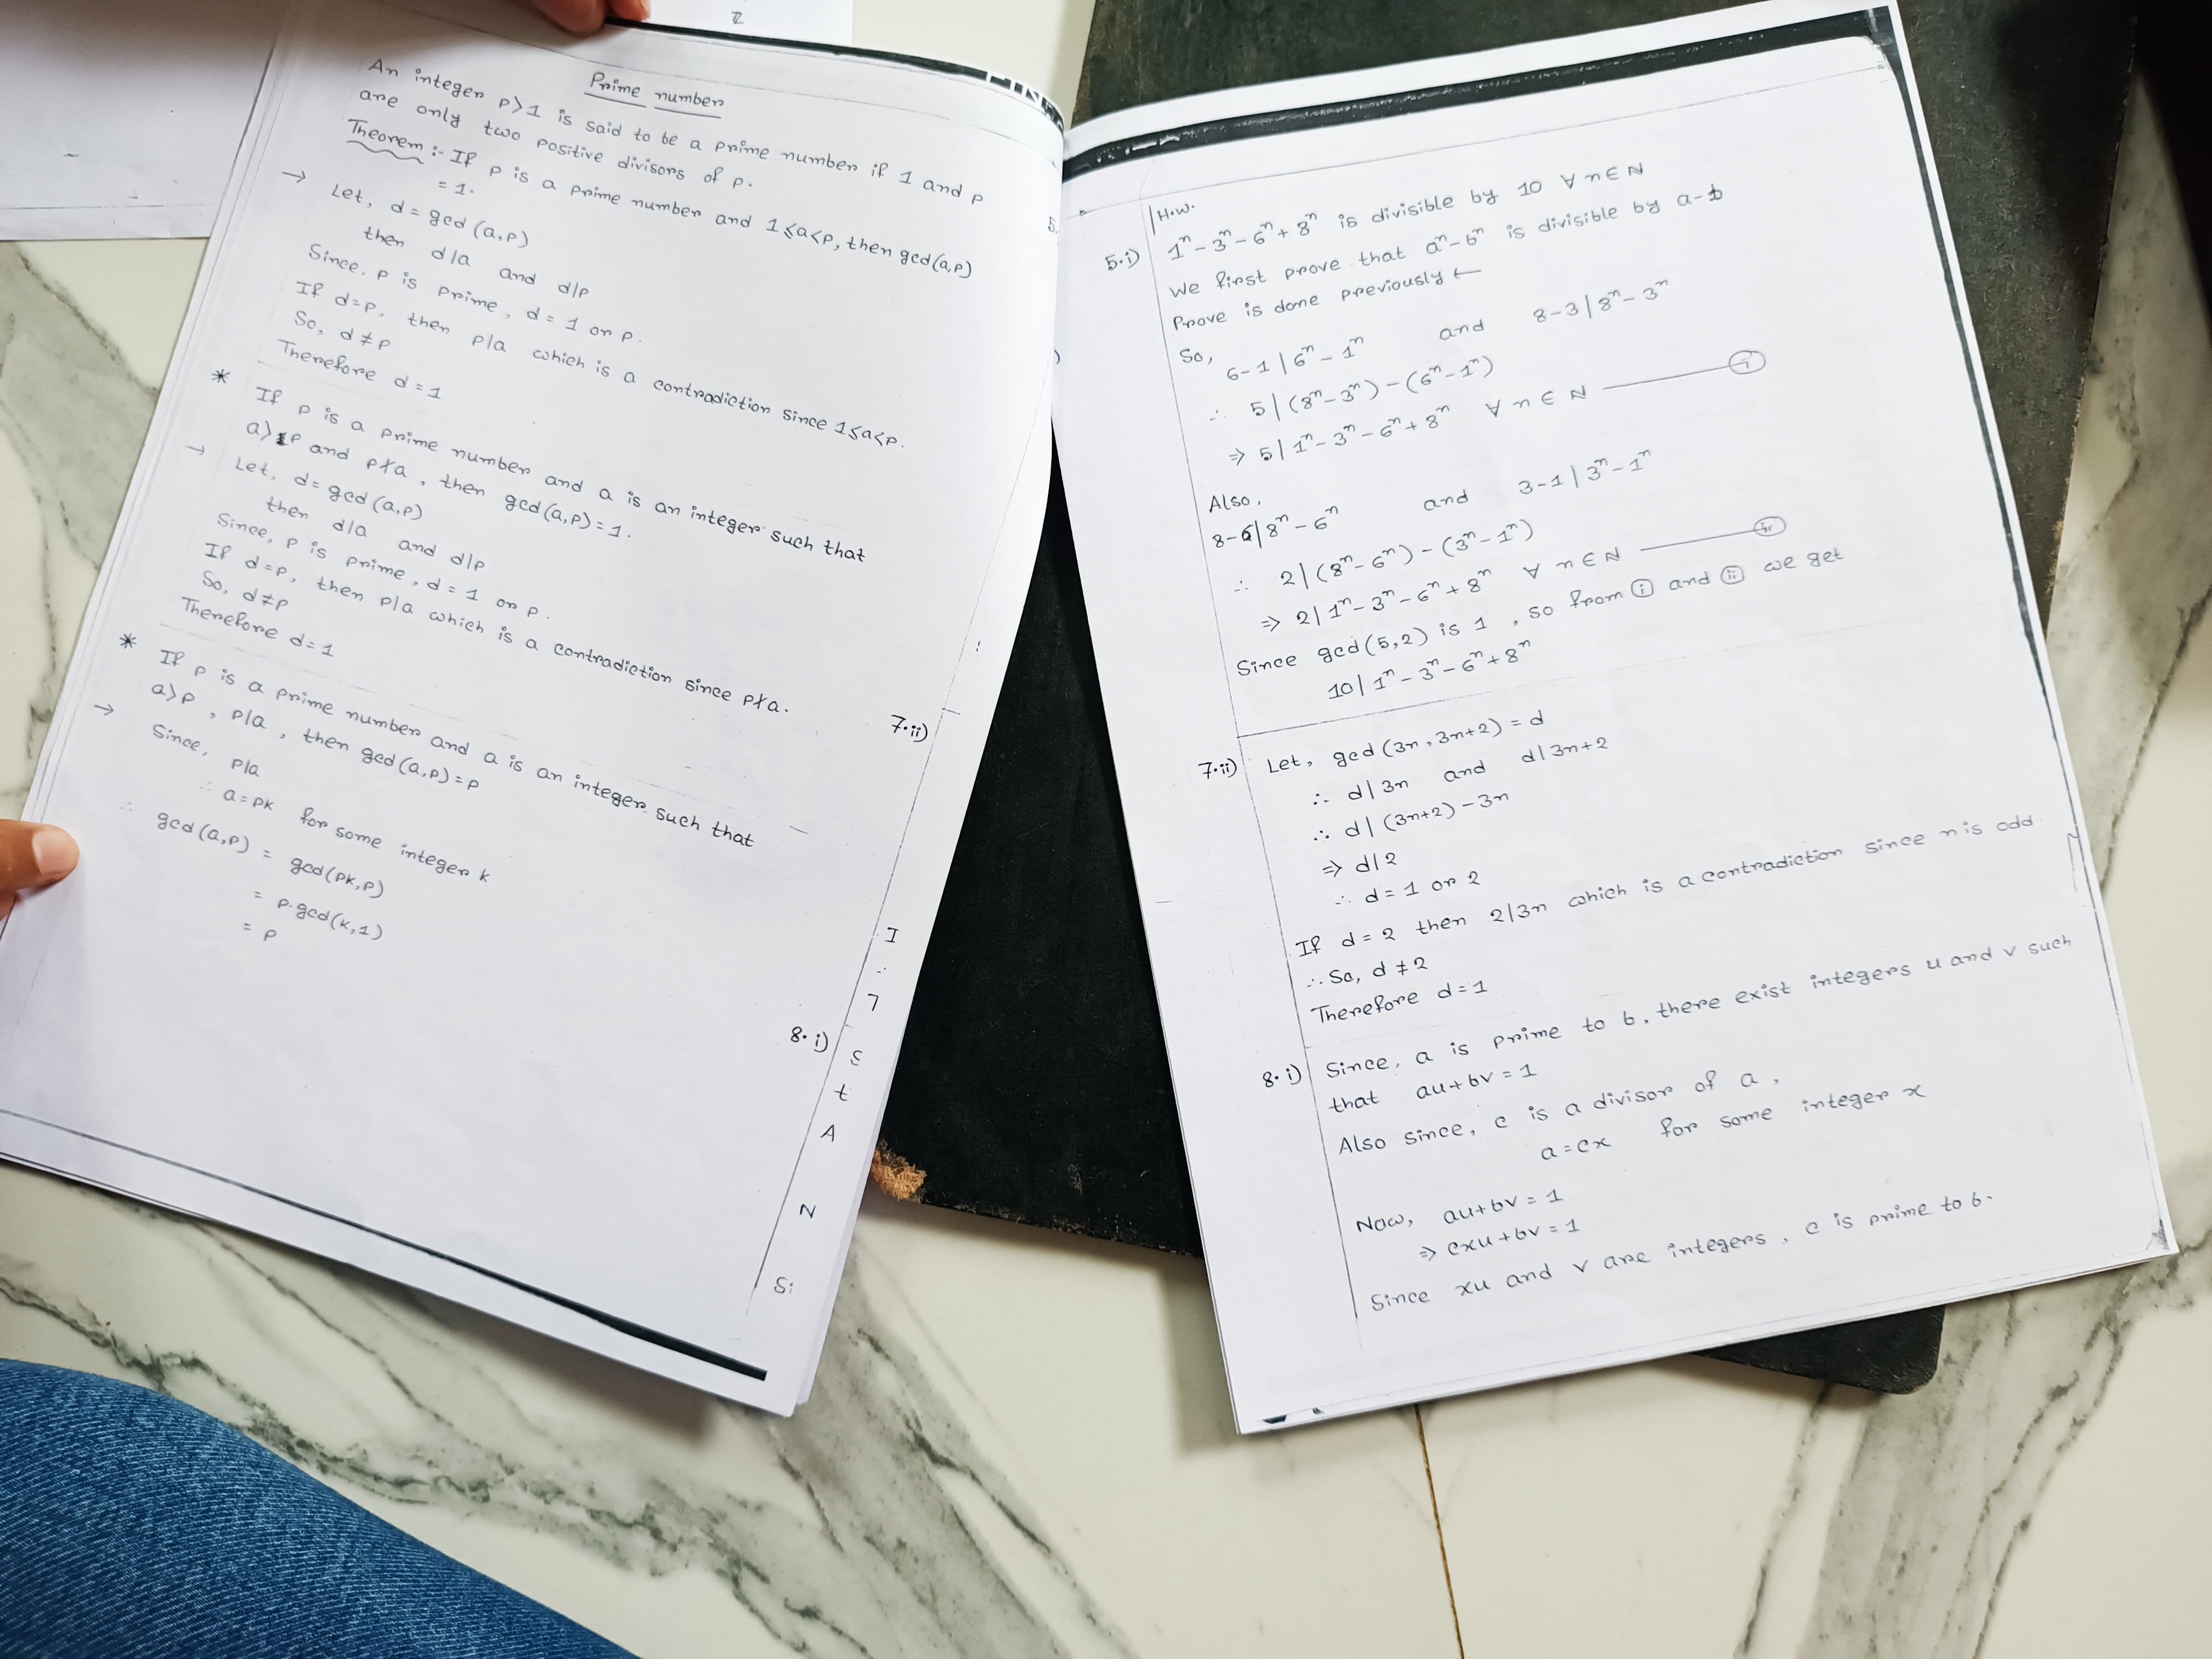 Z
Prime number
An integer p>1 is said to be a prime number if 1 and p
are only two positive divisors of p.
Theorem :- If p is a prime number and 1≤a<p, then gcd(a,p)
= 1.
→ Let, d = gcd (a,p)
then d/a and d/p
Since, p is prime, d = 1 or p.
If d=p, then p/a which is a contradiction since 1≤a<p.
So, d ≠ p
Therefore d = 1
* If p is a prime number and a is an integer such that
a>p and p∤a, then gcd(a,p) = 1.
→ Let, d = gcd (a,p)
then d/a and d/p
Since, p is prime, d = 1 or p.
If d=p, then p/a which is a contradiction since p∤a.
So, d≠p
Therefore d=1
* If p is a prime number and a is an integer such that
a>p, p/a, then gcd(a,p) = p
→ Since, p/a
∴ a=pk for some integer k
∴ gcd(a,p) = gcd(pk,p)
= p.gcd(k,1)
= p
5.
7.ii)
I
∴
8.i)
t
A
N
Si
H.w.
5.i) 1ⁿ - 3ⁿ - 6ⁿ + 8ⁿ is divisible by 10 ∀ n ∈ N
We first prove that aⁿ - bⁿ is divisible by a-b
Prove is done previously ←
So, 6-1 | 6ⁿ - 1ⁿ and 8-3 | 8ⁿ - 3ⁿ
∴ 5 | (8ⁿ - 3ⁿ) - (6ⁿ - 1ⁿ)
⇒ 5 | 1ⁿ - 3ⁿ - 6ⁿ + 8ⁿ ∀ n ∈ N — (i)
Also,
8-6 | 8ⁿ - 6ⁿ and 3-1 | 3ⁿ - 1ⁿ
∴ 2 | (8ⁿ - 6ⁿ) - (3ⁿ - 1ⁿ)
⇒ 2 | 1ⁿ - 3ⁿ - 6ⁿ + 8ⁿ ∀ n ∈ N — (ii)
Since gcd (5,2) is 1, so from (i) and (ii) we get
10 | 1ⁿ - 3ⁿ - 6ⁿ + 8ⁿ
7.ii) Let, gcd (3n, 3n+2) = d
∴ d | 3n and d | 3n+2
∴ d | (3n+2) - 3n
⇒ d | 2
∴ d = 1 or 2
If d = 2 then 2/3n which is a contradiction since n is odd
∴ So, d ≠ 2
Therefore d = 1
8.i) Since, a is prime to b, there exist integers u and v such
that au+bv = 1
Also since, c is a divisor of a,
a = cx for some integer x
Now, au+bv = 1
⇒ cxu+bv = 1
Since xu and v are integers, c is prime to b.